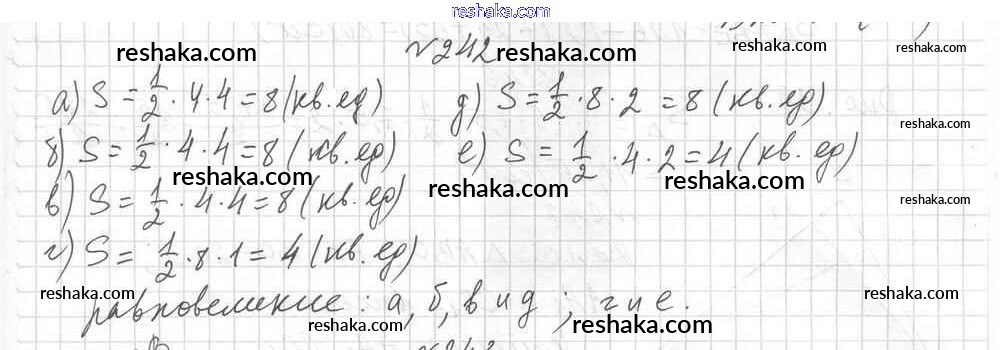 reshaka.com
reshaka.com reshaka.com
№ 242
reshaka.com reshaka.com
а) S = 1/2 · 4 · 4 = 8 (кв. ед) д) S = 1/2 · 8 · 2 = 8 (кв. ед).
reshaka.com
б) S = 1/2 · 4 · 4 = 8 (кв. ед) е) S = 1/2 · 4 · 2 = 4 (кв. ед)
reshaka.com reshaka.com reshaka.com
в) S = 1/2 · 4 · 4 = 8 (кв. ед)
reshaka.com
г) S = 1/2 · 8 · 1 = 4 (кв. ед)
reshaka.com reshaka.com reshaka.com
равновеликие: а, б, в и д; г и е.
reshaka.com reshaka.com reshaka.com